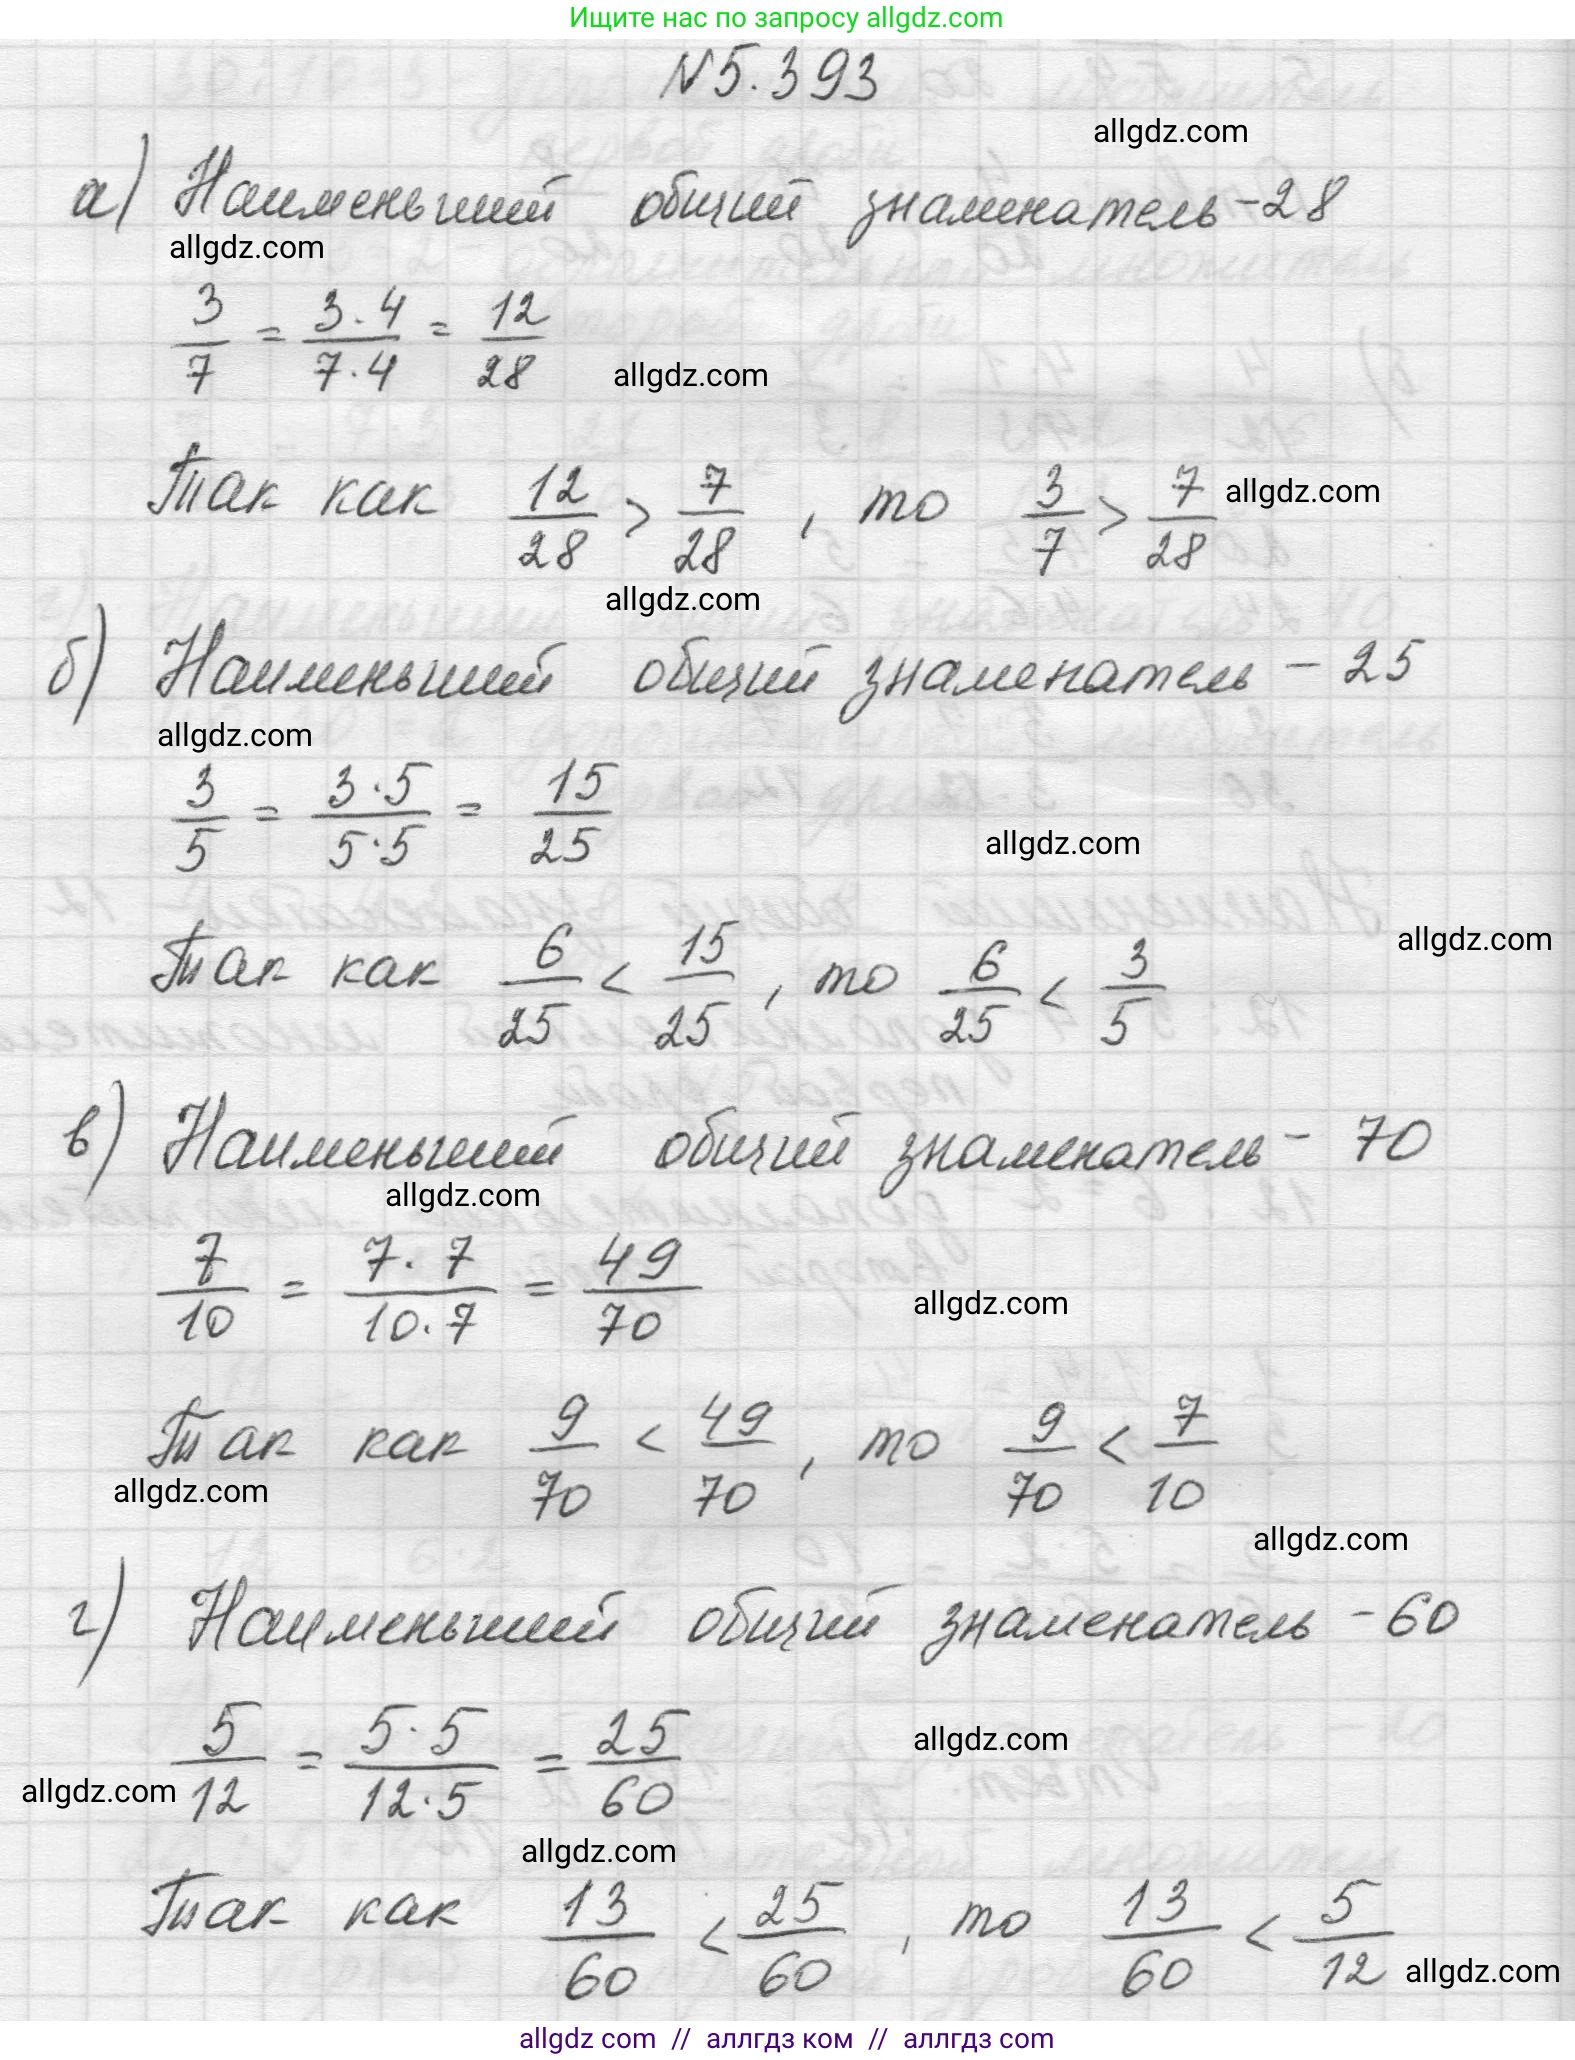 Ищите нас по запросу allgdz.com
№5.393
allgdz.com
а) Наименьший общий знаменатель - 28
allgdz.com
3/7 = 3·4/7·4 = 12/28
allgdz.com
Так как 12/28 > 7/28, то 3/7 > 7/28 allgdz.com
allgdz.com
б) Наименьший общий знаменатель - 25
allgdz.com
3/5 = 3·5/5·5 = 15/25
allgdz.com
Так как 6/25 < 15/25, то 6/25 < 3/5
allgdz.com
в) Наименьший общий знаменатель - 70
allgdz.com
7/10 = 7·7/10·7 = 49/70
allgdz.com
Так как 9/70 < 49/70, то 9/70 < 7/10
allgdz.com
allgdz.com
г) Наименьший общий знаменатель - 60
5/12 = 5·5/12·5 = 25/60
allgdz.com
allgdz.com
allgdz.com
Так как 13/60 < 25/60, то 13/60 < 5/12
allgdz.com
allgdz com // аллгдз ком // аллгдз com